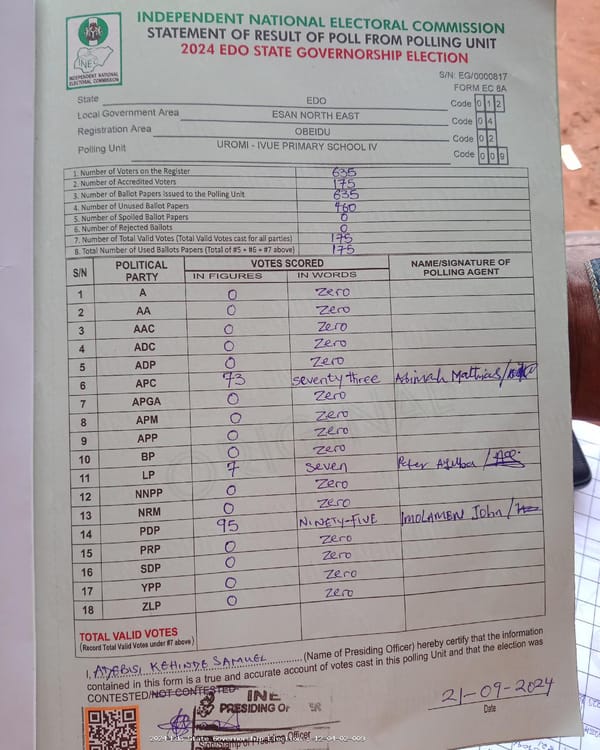 INDEPENDENT NATIONAL ELECTORAL COMMISSION
STATEMENT OF RESULT OF POLL FROM POLLING UNIT
2024 EDO STATE GOVERNORSHIP ELECTION
INEC
INDEPENDENT NATIONAL
ELECTORAL COMMISSION
S/N: EG/0000817
FORM EC 8A
State EDO Code 0 1 2
Local Government Area ESAN NORTH EAST Code 0 4
Registration Area OBEIDU Code 0 2
Polling Unit UROMI - IVUE PRIMARY SCHOOL IV Code 0 0 9
1. Number of Voters on the Register 635
2. Number of Accredited Voters 175
3. Number of Ballot Papers Issued to the Polling Unit 635
4. Number of Unused Ballot Papers 460
5. Number of Spoiled Ballot Papers 0
6. Number of Rejected Ballots 0
7. Number of Total Valid Votes (Total Valid Votes cast for all parties) 175
8. Total Number of Used Ballots Papers (Total of #5 + #6 + #7 above) 175
S/N POLITICAL PARTY VOTES SCORED NAME/SIGNATURE OF POLLING AGENT
IN FIGURES IN WORDS
1 A 0 Zero
2 AA 0 Zero
3 AAC 0 Zero
4 ADC 0 Zero
5 ADP 0 Zero
6 APC 73 seventy three Mathias/
7 APGA 0 Zero
8 APM 0 Zero
9 APP 0 Zero
10 BP 0 Zero
11 LP 7 seven Peter
12 NNPP 0 Zero
13 NRM 0 Zero
14 PDP 95 NINETY-FIVE IMOLAMEN John/
15 PRP 0 Zero
16 SDP 0 Zero
17 YPP 0 Zero
18 ZLP 0 Zero
TOTAL VALID VOTES
(Record Total Valid Votes under #7 above)
I, ADEBISI KEHINDE SAMUEL (Name of Presiding Officer) hereby certify that the information
contained in this form is a true and accurate account of votes cast in this polling Unit and that the election was
CONTESTED/NOT CONTESTED
INE
PRESIDING
21-09-2024
Date
Presiding Officer
2024 Edo State Governorship Election 12-04-02-009